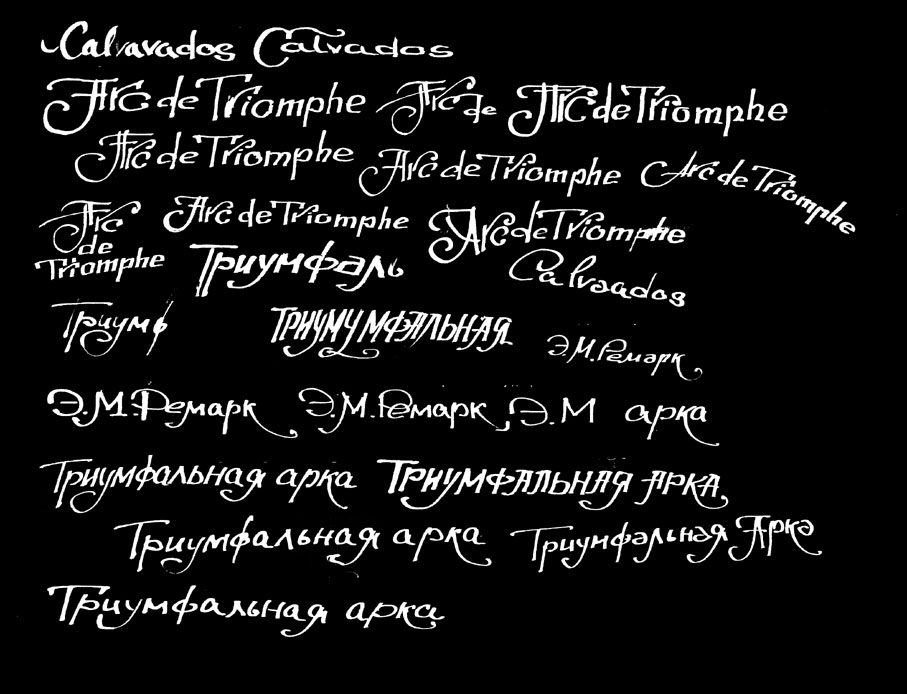 Calvavados Calvados
Arc de Triomphe Arc de Arc de Triomphe
Arc de Triomphe Arc de Triomphe Arc de Triomphe
Arc de Triomphe Arc de Triomphe Arc de Triomphe
Триумфаль Calvaados
Триумф ТРИУМУМФАЛЬНАЯ Э.М.Ремарк
Э.М.Ремарк Э.М.Ремарк Э.М арка
Триумфальная арка ТРИУМФАЛЬНАЯ АРКА
Триумфальная арка Триумфальная Арка
Триумфальная арка